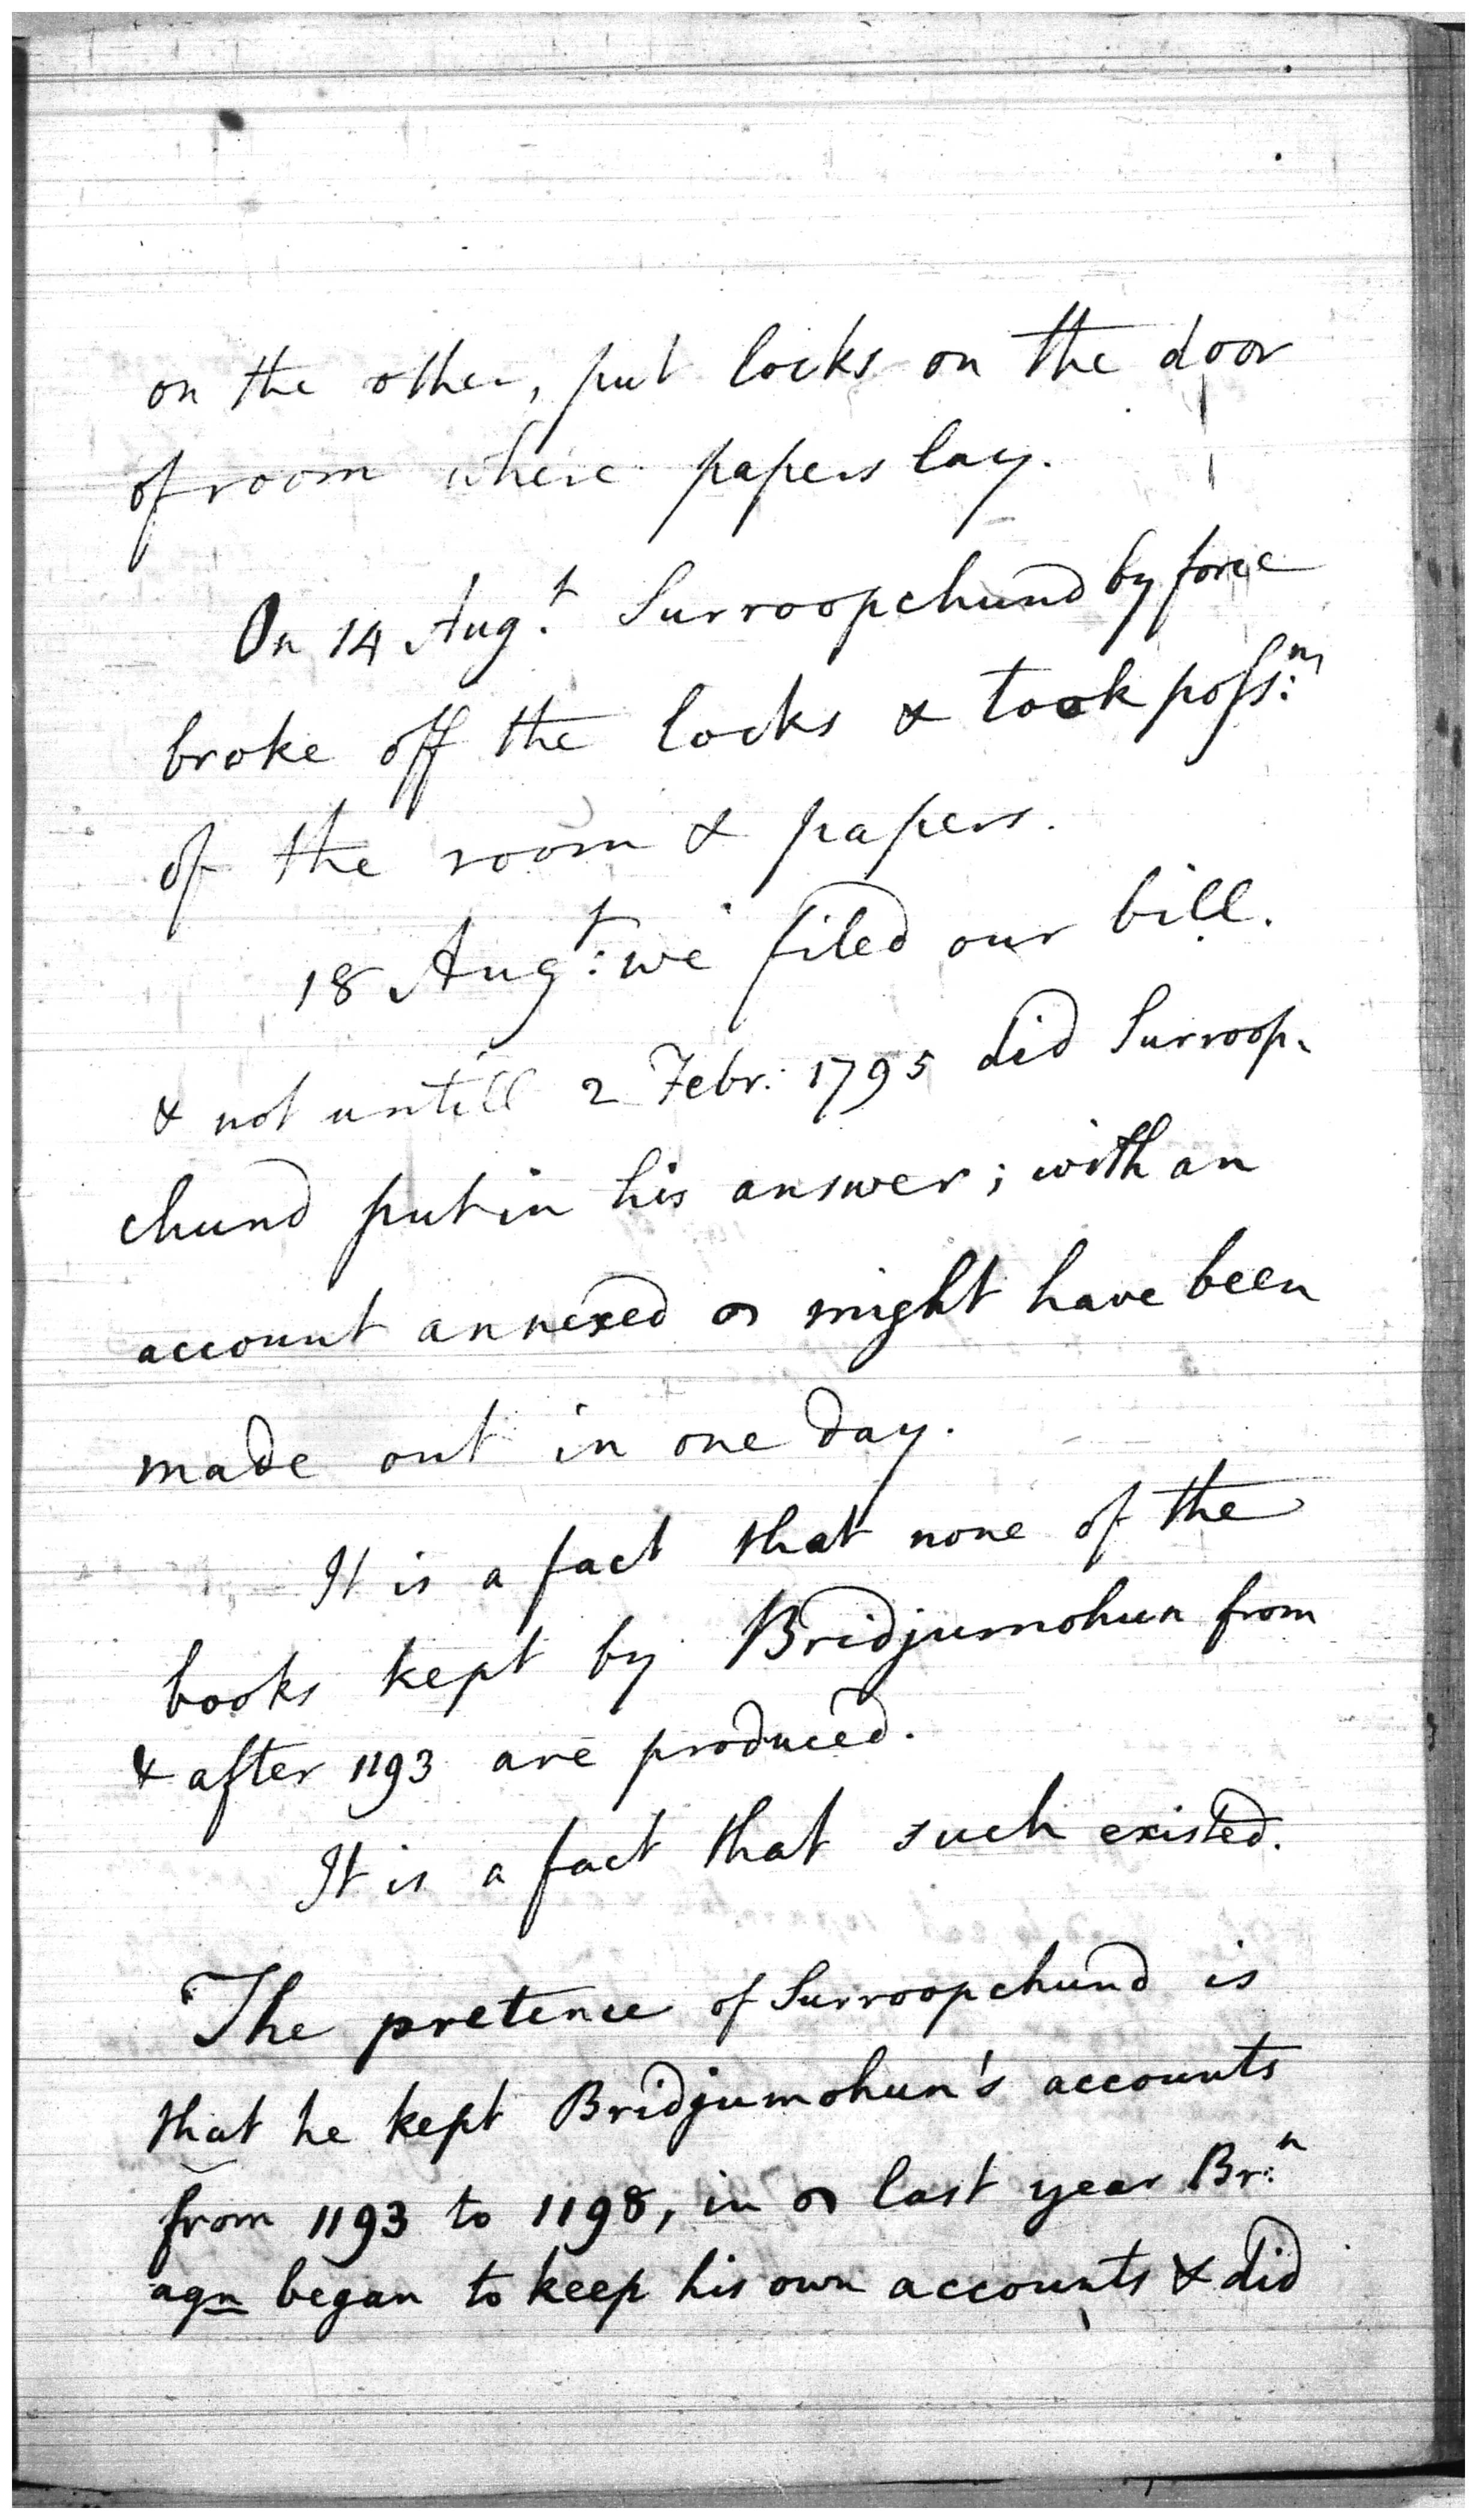 on the other, put locks on the door
of room where papers lay.
On 14 Aug.t Surroopchund by force
broke off the locks & took poss:n
of the room & papers.
18 Aug:t we filed our bill.
& not untill 2 Febr: 1795 did Surroop-
chund put in his answer; with an
account annexed might have been
made out in one day.
It is a fact that none of the
books kept by Bridjumohun from
& after 1193 are produced.
It is a fact that such existed.
The pretence of Surroopchund is
that he kept Bridjumohun's accounts
from 1193 to 1198, in last year Br:n
agn began to keep his own accounts & did